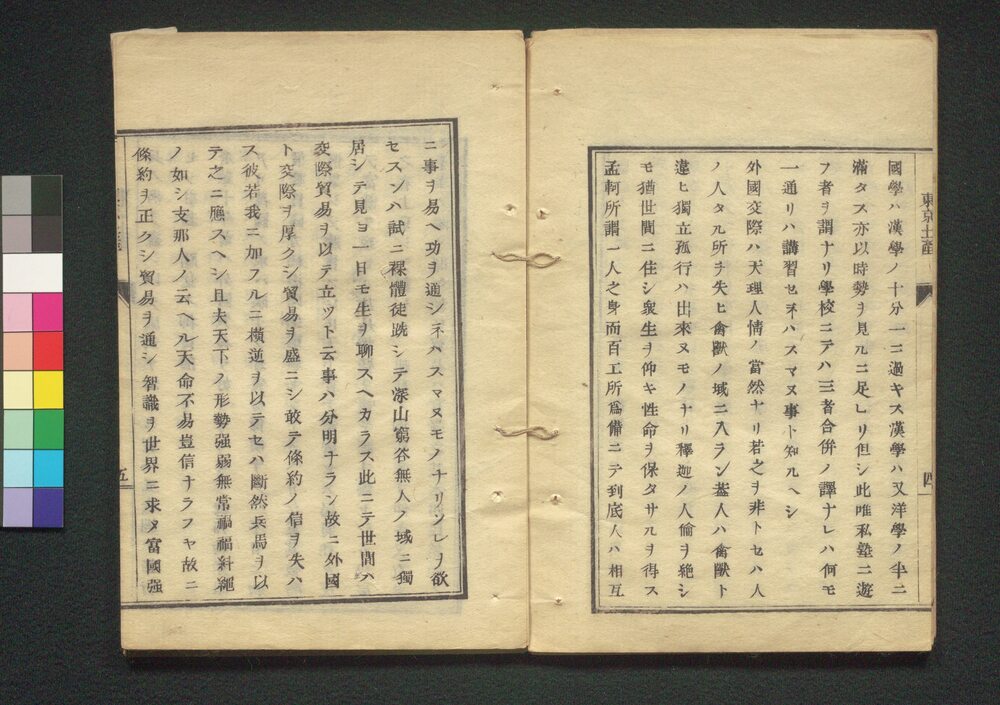 東京土產
四
國學ハ漢學ノ十分一ニ過キス漢學ハ又洋學ノ半ニ
滿タス亦以時勢ヲ見ルニ足レリ但シ此唯私塾ニ遊
フ者ヲ謂ナリ學校ニテハ三者合併ノ譯ナレハ何モ
一通リハ講習セネハスマヌ事ト知ルヘシ
外國交際ハ天理人情ノ當然ナリ若之ヲ非トセハ人
ノ人タル所ヲ失ヒ禽獸ノ域ニ入ラン蓋人ハ禽獸ト
違ヒ獨立孤行ハ出來ヌモノナリ釋迦ノ人倫ヲ絶シ
モ猶世間ニ住シ衆生ヲ仰キ性命ヲ保タサルヲ得ス
孟軻所謂一人之身而百工所爲備ニテ到底人ハ相互
ニ事ヲ易ヘ功ヲ通シネハスマヌモノナリソレヲ欲
セスンハ試ニ裸體徒跣シテ深山窮谷無人ノ域ニ獨
居シテ見ヨ一日モ生ヲ聊スヘカラス此ニテ世間ハ
交際貿易ヲ以テ立ツト云事ハ分明ナラン故ニ外國
ト交際ヲ厚クシ貿易ヲ盛ニシ敢テ條約ノ信ヲ失ハ
ス彼若我ニ加フルニ橫逆ヲ以テセハ斷然兵馬ヲ以
テ之ニ應スヘシ且夫天下ノ形勢强弱無常禍福糾纆
ノ如シ支那人ノ云ヘル天命不易豈信ナラフヤ故ニ
條約ヲ正クシ貿易ヲ通シ智識ヲ世界ニ求メ富國强
五